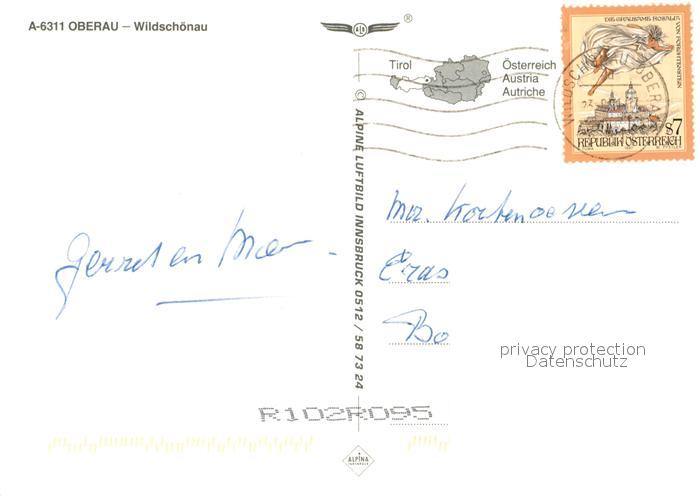 A-6311 OBERAU – Wildschönau
®
Tirol
Österreich
Austria
Autriche
DIE GRAUSAME ROSALIA
VON FORCHTENSTEIN
S7
REPUBLIK ÖSTERREICH
WILDSCHÖNAU OBERAU
© ALPINE LUFTBILD INNSBRUCK 0512 / 58 73 24
Gerret en
Eras
Bo
privacy protection
Datenschutz
R102R095
ALPINA